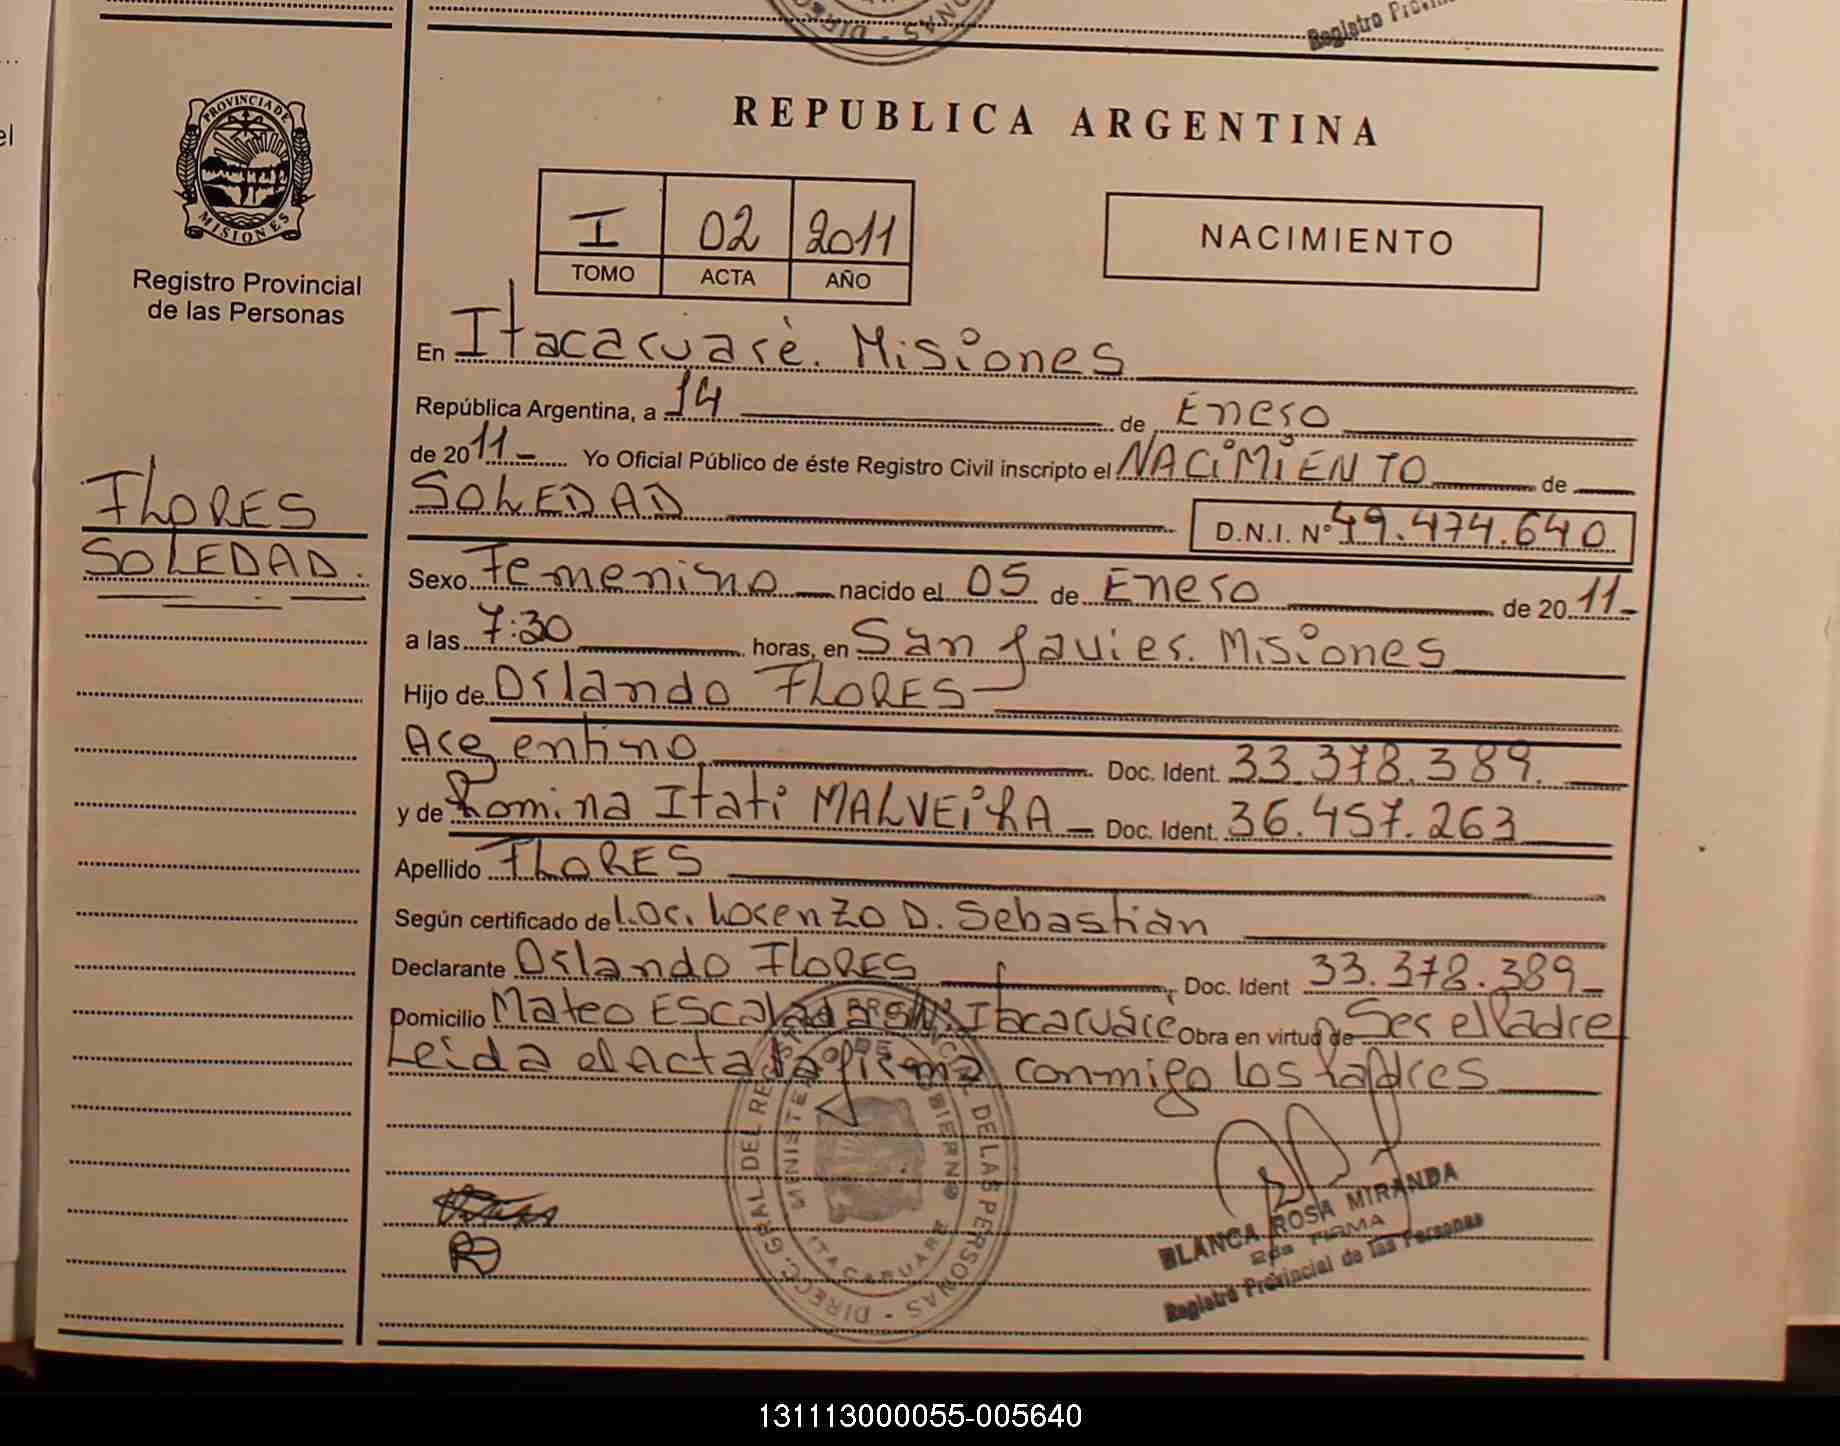 Registro Provin
DIREC NAS
PROVINCIA DE
MISIONES
Registro Provincial
de las Personas
FLORES
SOLEDAD.
REPUBLICA ARGENTINA
I 02 2011
TOMO ACTA AÑO
NACIMIENTO
En Itacaruarè. Misiones
República Argentina, a 14 de Enero
de 2011.- Yo Oficial Público de éste Registro Civil inscripto el NACiMiENTO de
SOLEDAD D.N.I. Nº 49.474.640
Sexo Femenino nacido el 05 de Enero de 2011-
a las 7:30 horas, en San Javier. Misiones
Hijo de Orlando FLORES
Argentino Doc. Ident. 33.378.389.
y de Romina Itati MALVEiRA - Doc. Ident. 36.457.263
Apellido FLORES
Según certificado de L.oc. Lorenzo D. Sebastiàn
Declarante Orlando FLORES Doc. Ident 33.378.389-
Domicilio Mateo Escalada S/N. Itacaruare Obra en virtud de Ser el Padre
Leida el Acta la firma conmigo los Padres
DIRECC. GRAL. DEL REGISTRO PROVINCIAL DE LAS PERSONAS -
MINISTERIO DE GOBIERNO
ITACARUARE
BLANCA ROSA MIRANDA
2da FIRMA
Registro Provincial de las Personas
131113000055-005640